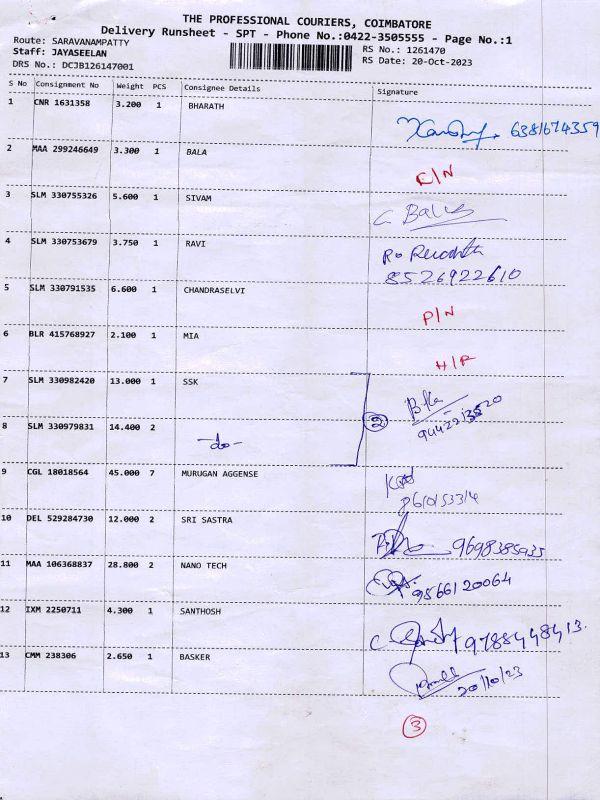 THE PROFESSIONAL COURIERS, COIMBATORE
Delivery Runsheet - SPT - Phone No.:0422-3505555 - Page No.:1
Route: SARAVANAMPATTY RS No.: 1261470
Staff: JAYASEELAN RS Date: 20-Oct-2023
DRS No.: DCJB126147001
S No Consignment No Weight PCS Consignee Details Signature
1 CNR 1631358 3.200 1 BHARATH 6381674359
2 MAA 299246649 3.300 1 BALA C/N
3 SLM 330755326 5.600 1 SIVAM
4 SLM 330753679 3.750 1 RAVI
8526922610
5 SLM 330791535 6.600 1 CHANDRASELVI P/N
6 BLR 415768927 2.100 1 MIA H/R
7 SLM 330982420 13.000 1 SSK
8 SLM 330979831 14.400 2 -do- 2
9 CGL 18018564 45.000 7 MURUGAN AGGENSE
10 DEL 529284730 12.000 2 SRI SASTRA 9698385935
11 MAA 106368837 28.800 2 NANO TECH 9566120064
12 IXM 2250711 4.300 1 SANTHOSH 9788448413.
13 CMM 238306 2.650 1 BASKER
20/10/23
3